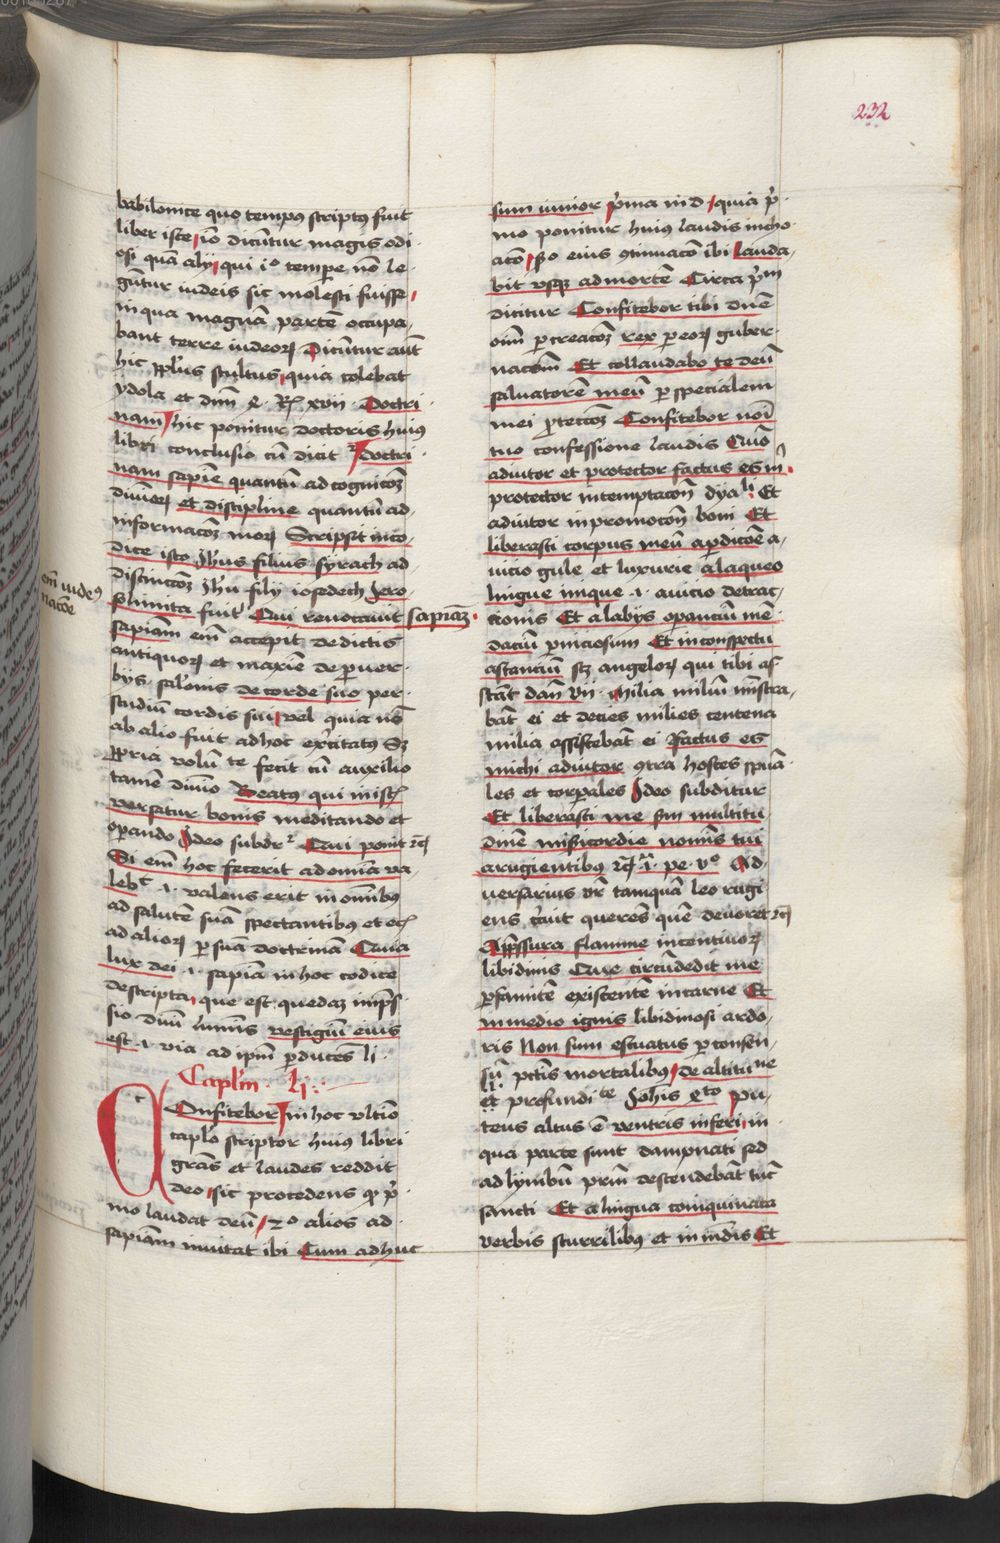 232
babilonice quo tempus scriptus fuit
liber iste io dicuntur magis odi
osi quā alij qui io tempere nō le
guntur iudeis sic molesti fuisse
in qua magnā partē occupa
bant terre iudeorū Dicūtur aūt
hic populus stultus quia colebat
ydola et dnm 4 Rͨ xvii Doctri
nam hic ponitur doctoris huius
libri conclusio cū dicit Doctri
nam sapīe quantū ad cognicōꝫ
diuinorū et discipline quantū ad
informacōꝫ morū Scripsit in co
dice isto Jhus filius syrach ad
distinctōꝫ Jhu filij iosedech Jero
solimita fuit Qui renouauit sapiāꝫ
sapiam em accepit de dictis
antiquorū et maxīe de prouer
bijs salomis de corde suo per
studiū cordis sui vel quia nō
ab alio fuit ad hoc excitatus Sꝫ
propria volūtate fecit cū auxilio
tamē diuīo Beatus qui in istis
versatur bonis meditando et
operando Ideo subdr Qui ponit ⁊c
Si em hoc fecerit ad omīa va
lebit .i. valens erit in omnibus
ad salutē suā spectantibus et ec
ad aliorū per suā doctrinam Quia
lux dei .i. sapīa in hoc codice
descripta que est quedaꝫ imps
sio diuini luminis vestigiū eius
est .i. via ad ipm perducēs li
Caplm li
Confitebor in hoc vltīo
caplo scriptor huius libri
gracās et laudes reddit
deo sic procedens q pri
mo laudat deū 2o alios ad
sapiam inuitat ibi Cum adhuc
sum iunior prima in d quia pri
mo ponitur huius laudis incho
acō secundo eius continuacō ibi Lauda
bit vsqꝫ ad mortē Circa primū
dicitur Confitebor tibi dnē
oīm per creacōꝫ rex per eorū guber
nacom Et collaudabo te deū
saluatorē meū per specialem
mei protectōꝫ Confitebor noī
tuo confessione laudis Quō
adiutor et protector factus es m
protector in temptacōn dyali Et
adiutor in promotōn boni Et
liberasti corpus meū a perdicōe a
vicio gule et luxurie a laqueo
lingue inique .i. a vicio detrac
cionis Et a labijs operanciū men
daciū perniciosum Et in conspectu
astanciūm scꝫ angelorū qui tibi as
stāt dan vii Milia miliū mīstra
bāt ei et decies milies centena
milia assistebāt ei Factus es
michi adiutor contra hostes spūa
les et corporales Ideo subditur
Et liberasti me sm multitu
dinē misericordie nomīs tui
a rugientibus ⁊c i pe vo Ad
uersarius vr tamquā leo rugi
ens circuit querēs quē deuoret ⁊c
A pressura flamme incentiuorū
libidinis Que circūdedit me
per famitē existentē in carne Et
in medio ignis libidinosi ardo
ris Non sum estuatus per consen
sū pctis mortalibus de altitudine
et profundite Johis 4to pu
teus altus ē ventris inferi in
qua parte sunt dampnati sed
ad lymbū prim descendebāt tūc
sancti Et a lingua coinquinata
verbis scurrilibus et inmūdis Et